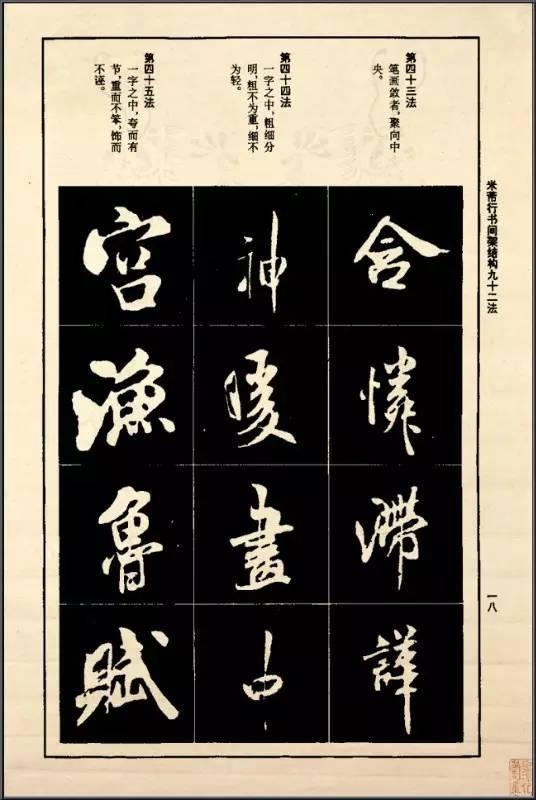 米芾行书间架结构九十二法
一八
第四十三法
笔画敛者，聚向中
央。
第四十四法
一字之中，粗细分
明，粗不为重，细不
为轻。
第四十五法
一字之中，夸而有
节，重而不笨，饰而
不诬。
含憐滯
神暖畫中
宮漁魯賦